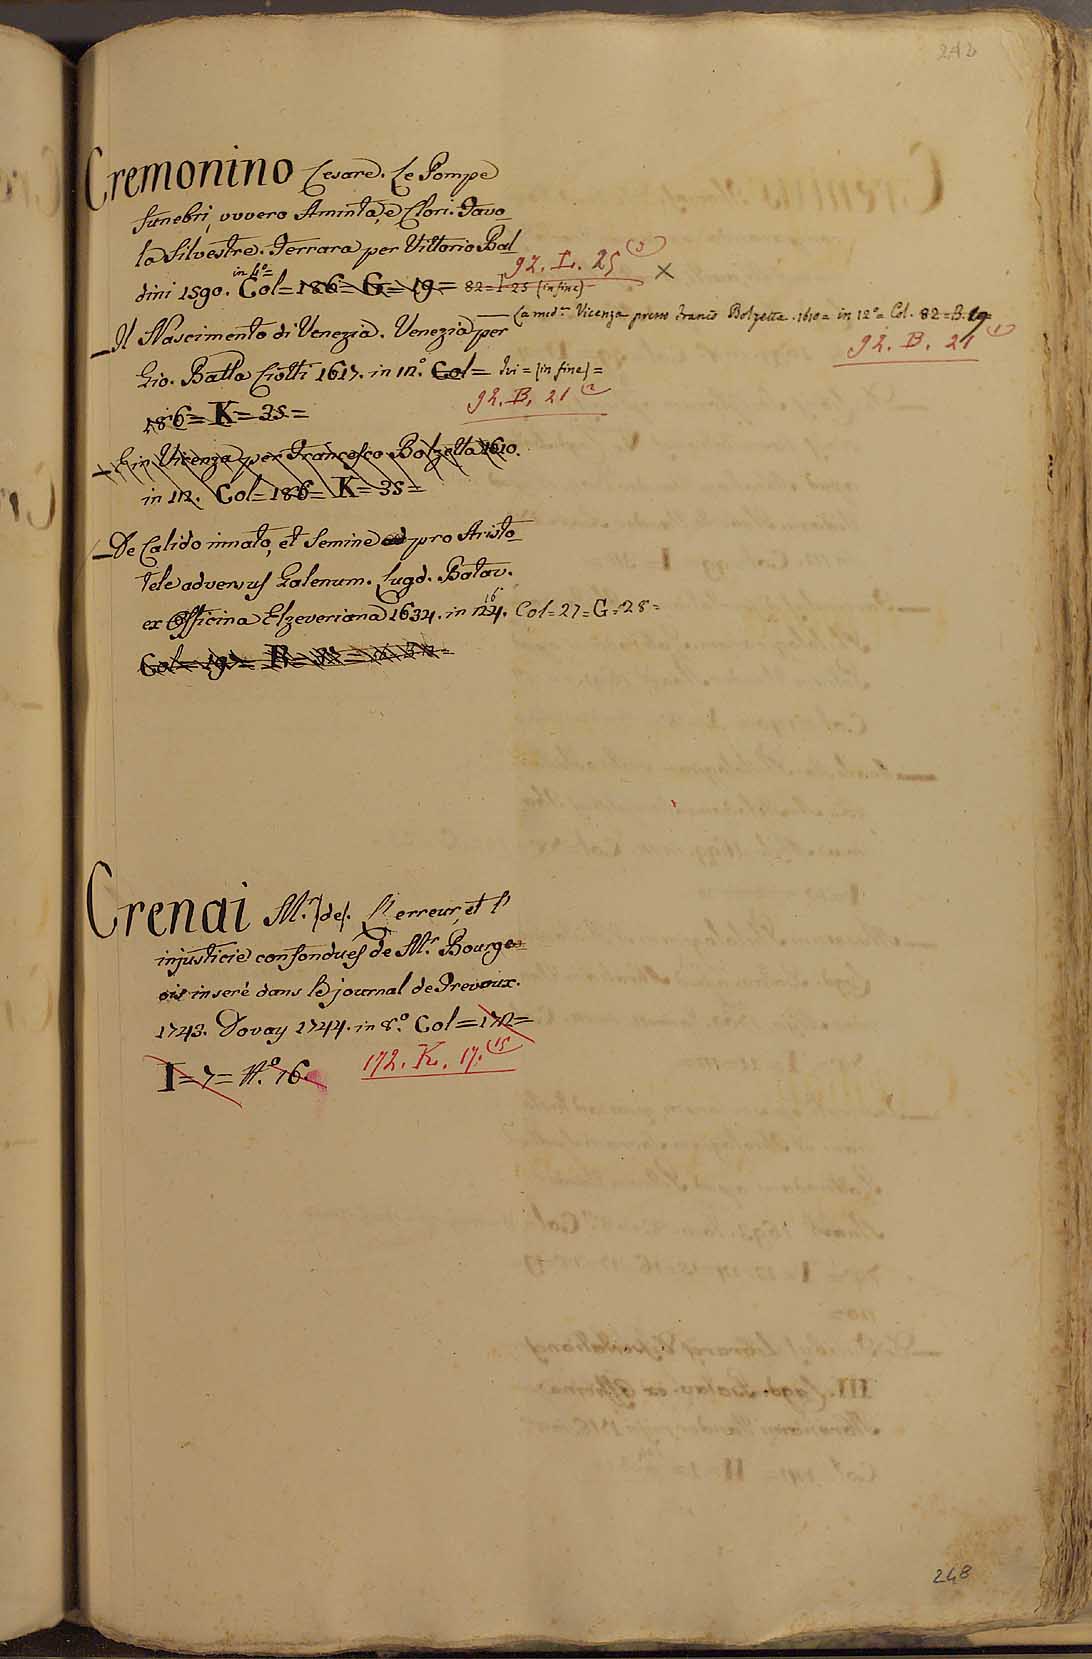 242
Cremonino Cesare. Le Pompe
funebri, ovvero Aminta, e Clori. Favo-
la Silvestre. Ferrara per Vittorio Bal
92. L. 25 (3) ×
dini 1590. in 4.º= Col= 186= G= 19= 82= I 25 (in fine)
— La med.ª Vicenza presso Franc.º Bolzetta. 1610= in 12º= Col. 82= B. 19
92. B. 21 (1)
— Il Nascimento di Venezia. Venezia per
Gio. Batta Ciotti 1617. in 12.º Col= Ivi= (in fine)=
92. B. 21 (2)
186= K= 35=
— E in Vicenza per Francesco Bolzetta 1610.
in 12. Col= 186= K= 35=
— De Calido innato, et Semine pro Aristo-
tele adversus Galenum. Lugd. Batav.
ex Officina Elzeveriana 1634. in 24. 16 Col= 27= G= 28=
Col= B=
Crenai M.r des. L'erreur, et l'
injusticie confondues de M.r Bourge-
ois inserè dans le journal de Trevoux.
1743. Dovay 1744. in 8.º Col= 172=
I= 7= N.º 16.
172. K. 17. (15
248